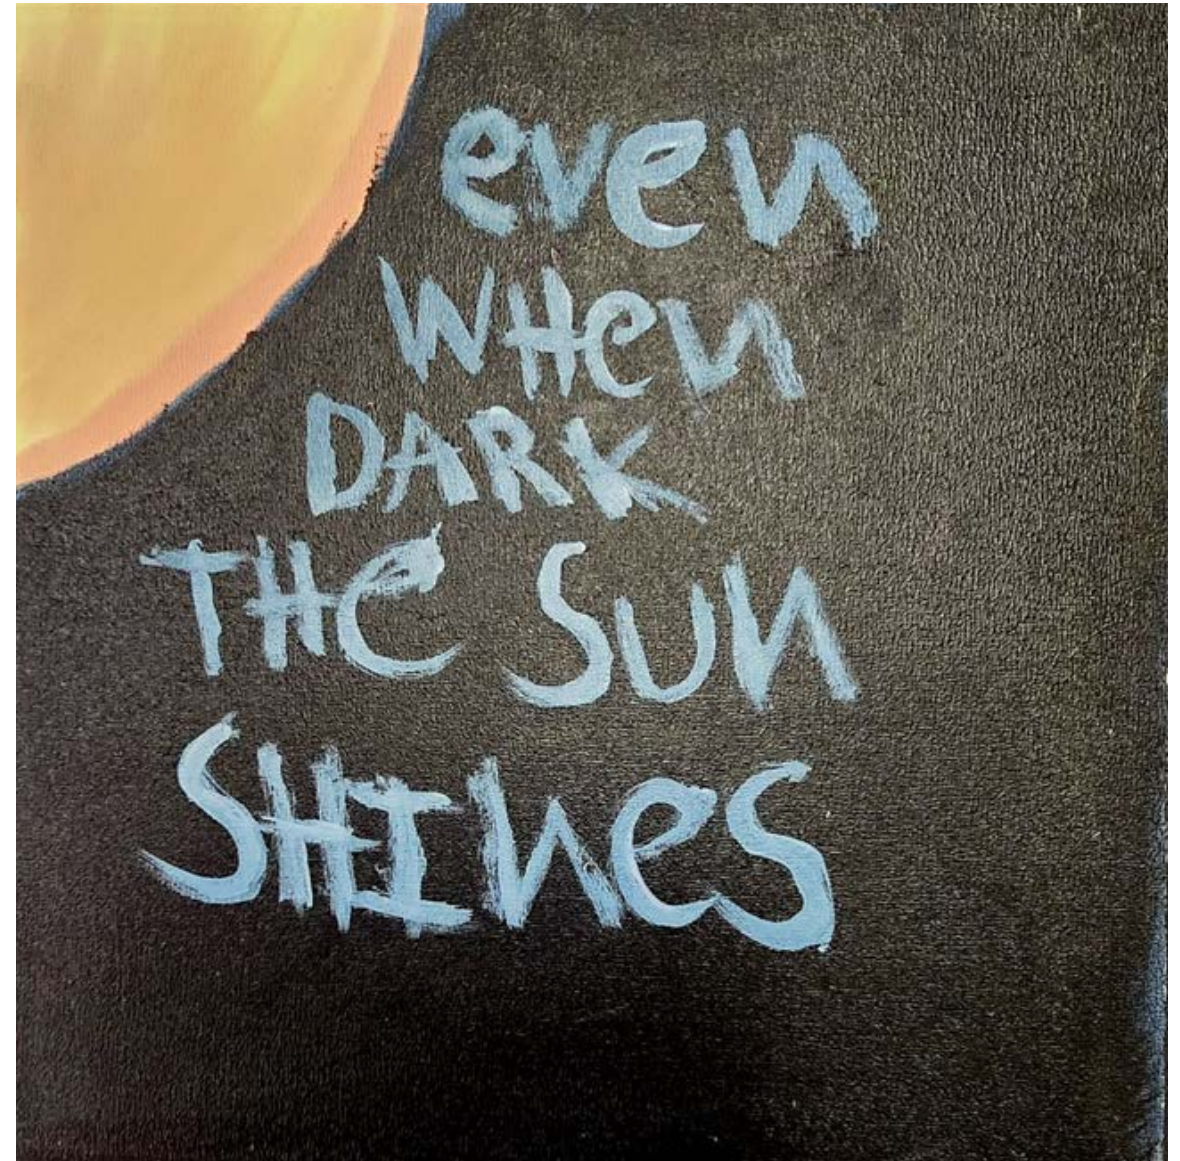 even
WHen
DARK
THe Sun
SHInes